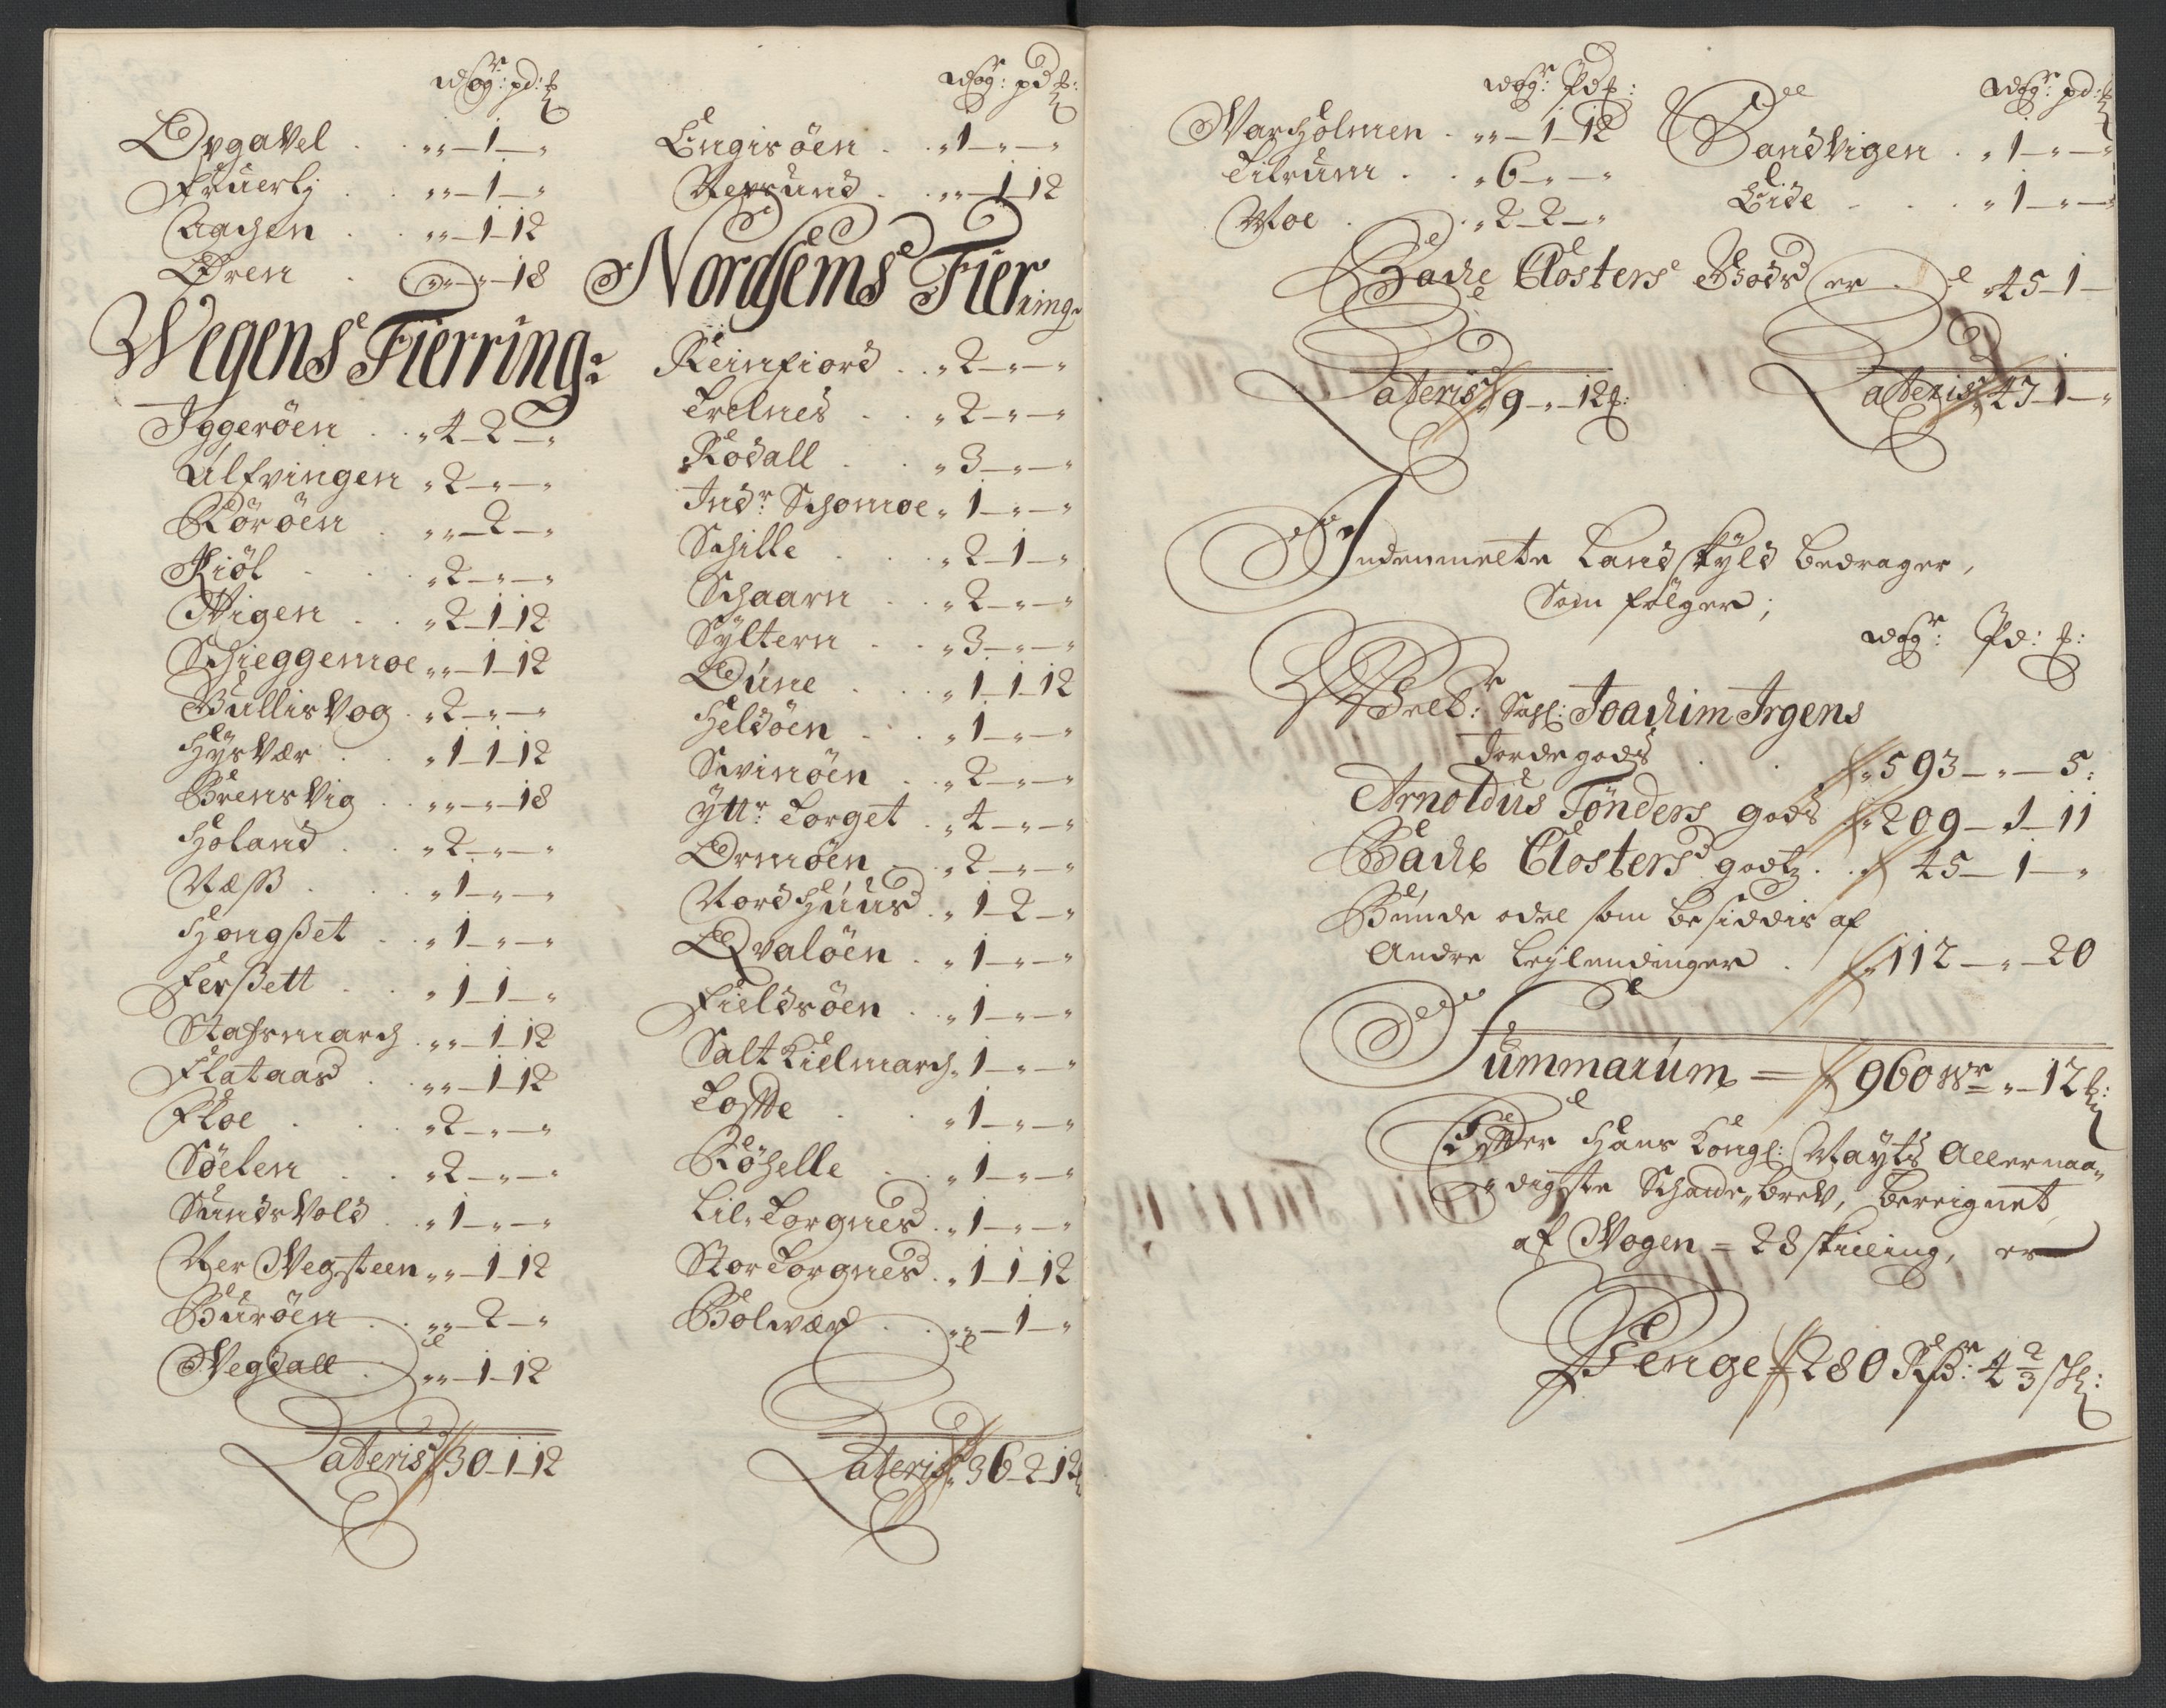 wogr: pd: ℔
Opgavel . . „ „ — 1 — „
Fruerlj . . „ „ — 1 — „
Aagsen . . „ „ — 1 — 12
Øren . „ „ — „ — 18
Wegens Fierring:
Jggeröen . . „ 4 — 2 — „
Ulfvingen „ 2 — „ — „
Röröen . „ „ — 2 — „
Kiöl . . „ 2 — „ — „
Wigen . . „ 2 — 1 — 12
Schieggemoe „ „ — 1 — 12
Bullisvog . „ 2 — „ — „
Hysvær . . „ 1 — 1 — 12
Brensvig . . „ „ — „ — 18
Höland . . „ 2 — „ — „
Næss . . „ 1 — „ — „
Hongßet . . „ 1 — „ — „
Ferßett . . „ 1 — 1 — „
Stafsmarch . „ „ — 1 — 12
Flataas . . „ „ — 1 — 12
Floe . . „ 2 — „ — „
Söelen . . „ 2 — „ — „
Sundsvold . „ 1 — „ — „
Ner Wegsteen „ „ — 1 — 12
Buröen . . „ „ — 2 — „
Wegdall . „ „ — 1 — 12
Lateris 30 — 1 — 12
wogr: pd ℔:
Engisöen . . „ 1 — „ — „
Repsund . . „ „ — 1 — 12
Nordhems Fierring:
Reinfiord . . „ 2 — „ — „
Trelnes . . „ 2 — „ — „
Rödall . . „ 3 — „ — „
Indr: Schomoe „ 1 — „ — „
Schille . . „ 2 — 1 — „
Schaarn . . „ 2 — „ — „
Syltern . . „ 3 — „ — „
Dune . . „ 1 — 1 — 12
Heldöen . . „ 1 — „ — „
Svinöen . . „ 2 — „ — „
Yttr: Torget . „ 4 — „ — „
Ormöen . „ 2 — „ — „
Nordhuus . „ 1 — 2 — „
Qvalöen . . „ 1 — „ — „
Fieldsöen . . „ 1 — „ — „
Salt Kielmarch „ 1 — „ — „
Tofte . . „ 1 — „ — „
Röhelle . . „ 1 — „ — „
Lil. Torgnes . „ 1 — „ — „
Stor Torgnes . „ 1 — 1 — 12
Bolvær . . „ „ — 1 — „
Lateris „ 36 — 2 — 12
wogr: Pd ℔:
Warholmen . „ „ — 1 — 12
Tilrum . . „ 6 — „ — „
Moe . „ 2 — 2 — „
wogr: pd: ℔
Sandvigen . „ 1 — „ — „
Eide . . „ 1 — „ — „
Bache Closters Gods er . „ 45 — 1 —
Lateris „ 9 — „ — 12 ℔:
Lateris „ 47 — 1 — „
Indenmelte Landskyld bedrager,
Som fölger;
wogr: Pd: ℔:
Sahl: Joachim Irgens
Jordegods . . „ 593 — „ — 5:
Arnoldus Tönders gods „ 209 — 1 — 11
Bache Closters godtz . . 45 — 1 — „
Bunde odel som besiddis af
Andre leylendinger . „ 112 — „ — 20
Summarum = 960 Wr „ — 12 ℔:
Efter Hans Kongl: Mayts Allernaa„
„digste Schaade„brev, bereignet
af Wogen = 28 skilling, er
Penge 280 Rdr: 4 2/3 sk: